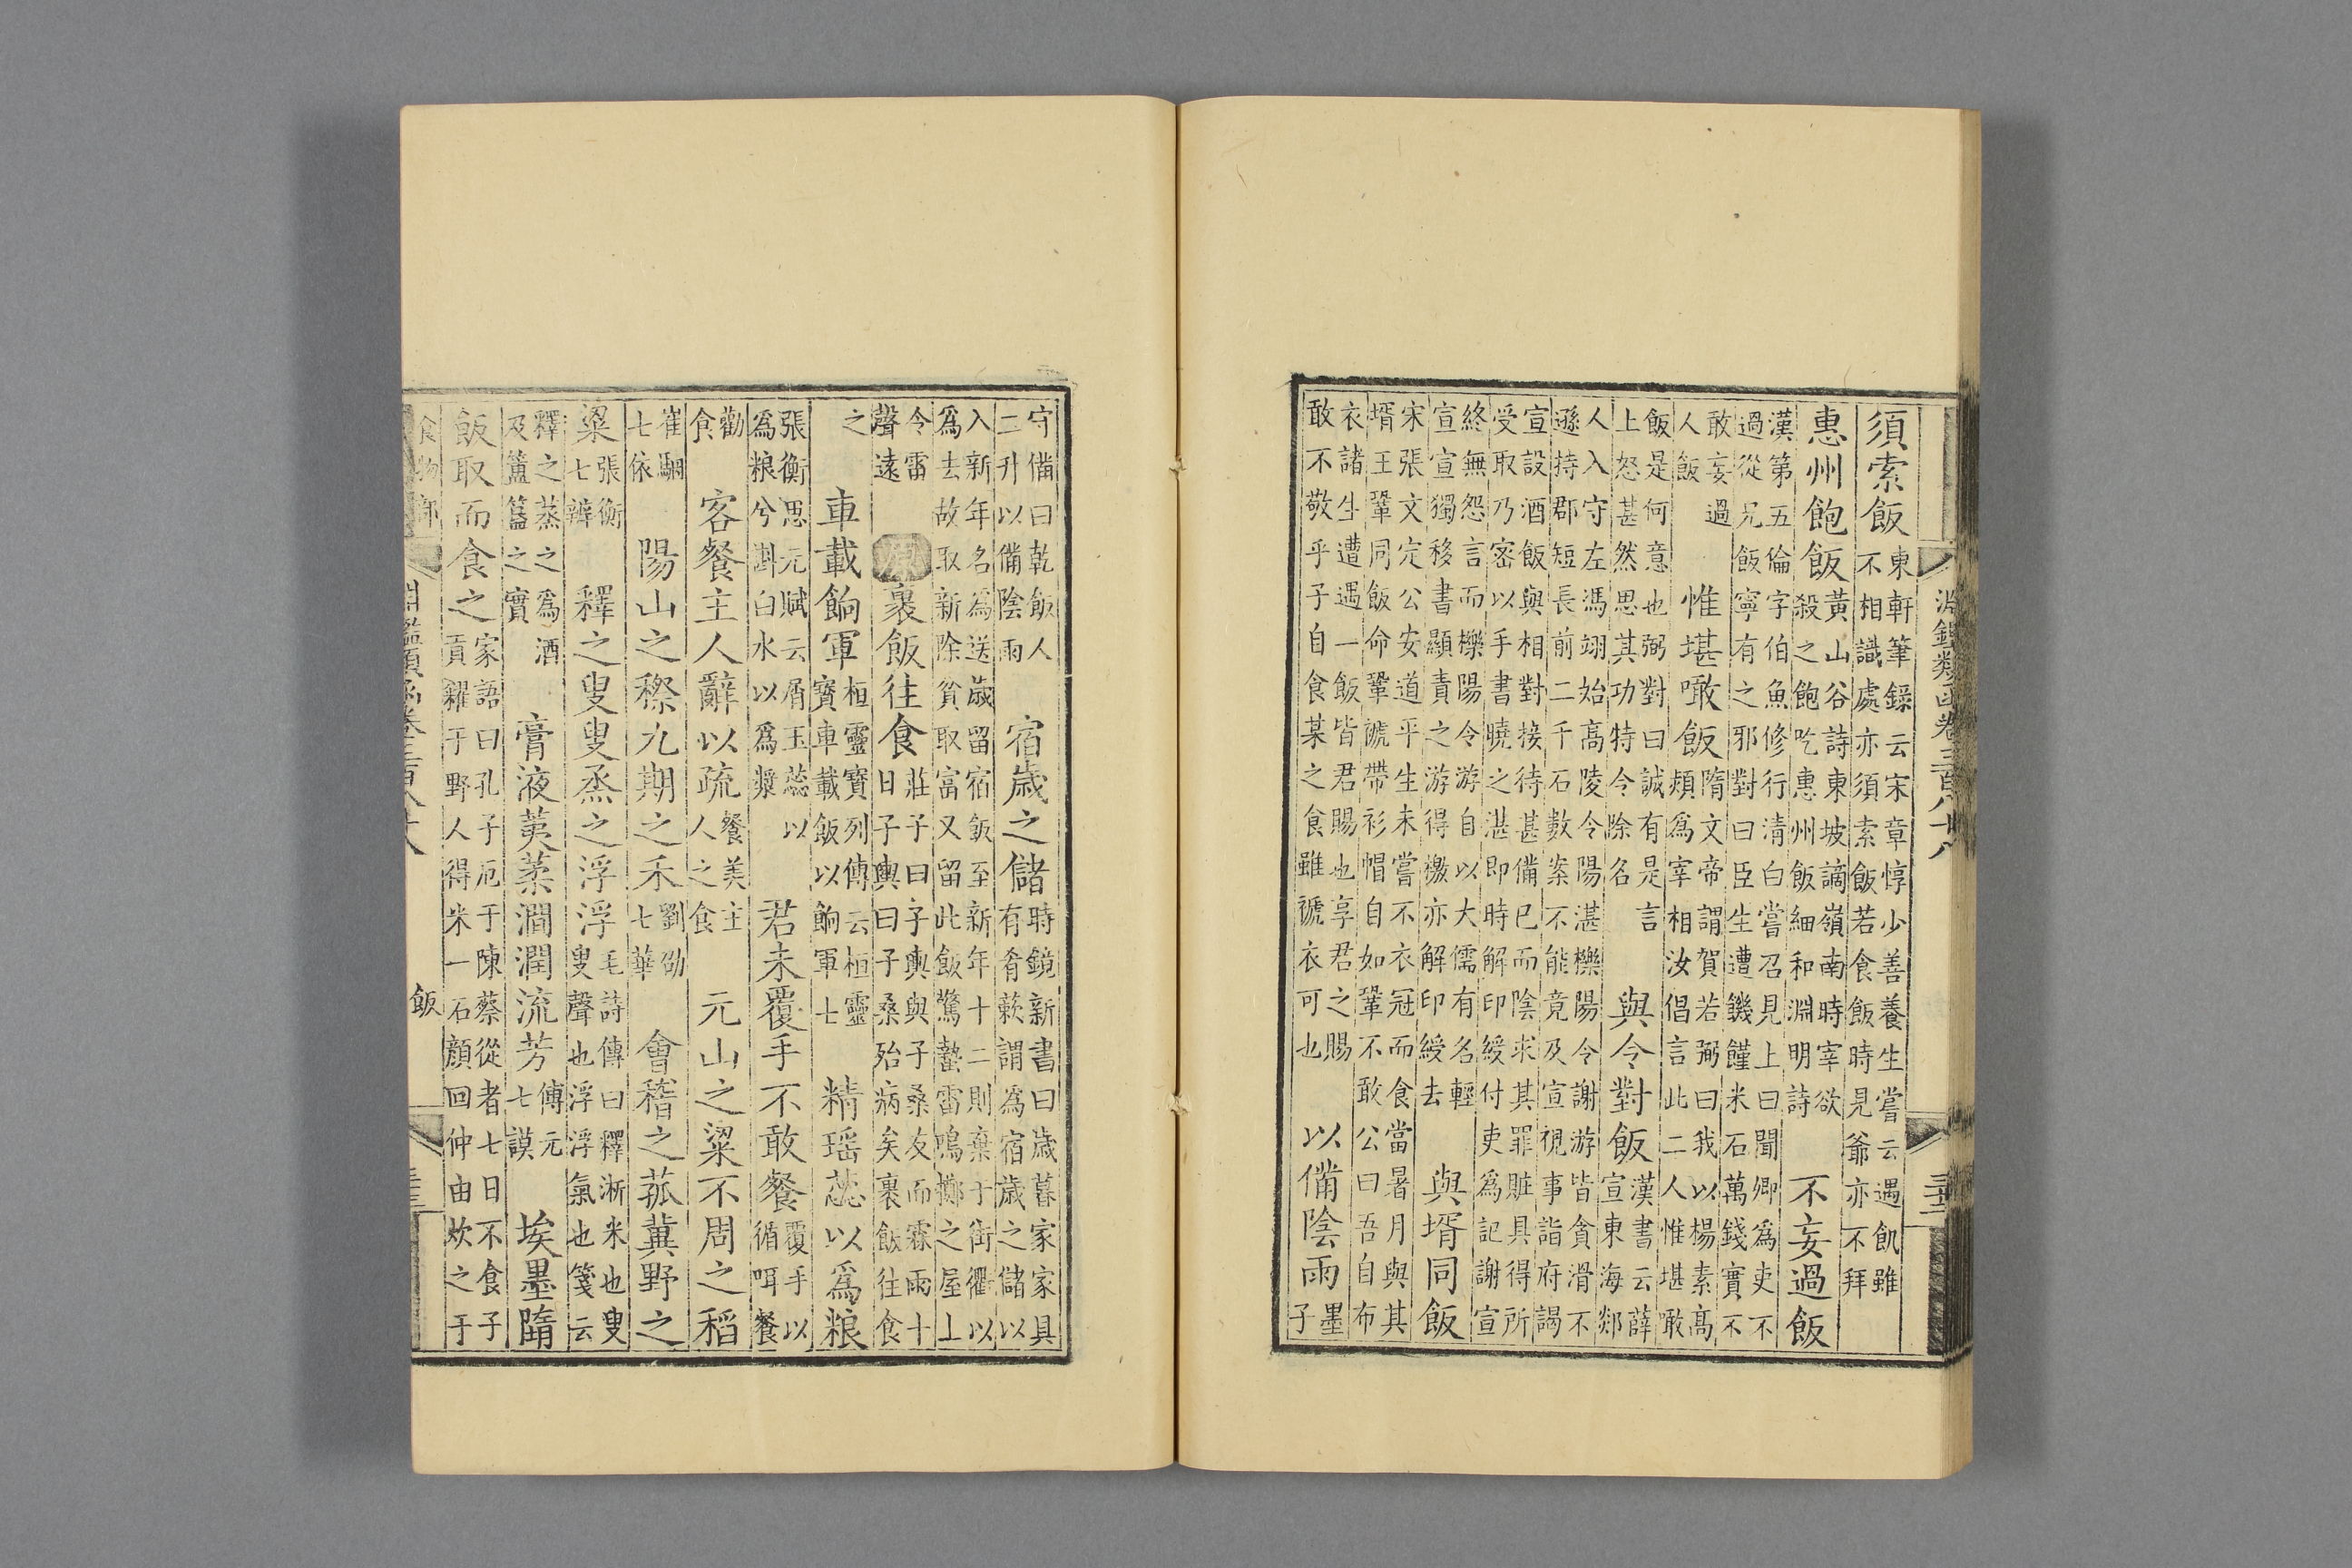 淵鑑類函卷三百八十八
三十二
須索飯
東軒筆錄云宋章惇少善養生嘗云遇飢雖
不相識處亦須索飯若食飯時見爺亦不拜
惠州飽飯
黃山谷詩東坡謫嶺南時宰欲
殺之飽吃惠州飯細和淵明詩
不妄過飯
漢第五倫字伯魚修行清白嘗召見上曰聞卿爲吏不
過從兄飯寧有之邪對曰臣生遭饑饉米石萬錢實不
敢妄過
人飯
惟堪噉飯
隋文帝謂賀若弼曰我以楊素高
熲爲宰相汝倡言此二人惟堪噉
飯是何意也弼對曰誠有是言
上怒甚然思其功特令除名
與令對飯
漢書云薛
宣東海郯
人入守左馮翊始高陵令陽湛櫟陽令謝游皆貪滑不
遜持郡短長前二千石數案不能竟及宣視事詣府謁
宣設酒飯與相對接待甚備已而陰求其罪贓具得所
受取乃密以手書曉之湛即時解印綬付吏爲記謝宣
終無怨言而櫟陽令游自以大儒有名輕
宣宣獨移書顯責之游得檄亦解印綬去
與壻同飯
宋張文定公安道平生未嘗不衣冠而食當暑月與其
壻王鞏同飯命鞏褫帶衫帽自如鞏不敢公曰吾自布
衣諸生遭遇一飯皆君賜也享君之賜
敢不敬乎子自食某之食雖褫衣可也
以備陰雨
墨
子
守備曰乾飯人
二升以備陰雨
宿歲之儲
時鏡新書曰歲暮家家具
有肴蔌謂爲宿歲之儲以
入新年名爲送歲留宿飯至新年十二則棄于街衢以
爲去故取新除貧取富又留此飯驚蟄雷鳴擲之屋上
令雷
聲遠
原
裹飯往食
莊子曰子輿與子桑友而霖雨十
日子輿曰子桑殆病矣裹飯往食
之
車載餉軍
桓靈寶列傳云桓靈
寶車載飯以餉軍士
精瑤蕊以爲粮
張衡思元賦云屑玉蕊以
爲粮兮㪺白水以爲漿
君未覆手不敢餐
覆手以
循咡餐
勸
食
客餐主人辭以疏
餐美主
人之食
元山之粱不周之稻
崔駰
七依
陽山之穄九期之禾
劉劭
七華
會稽之菰冀野之
粱
張衡
七辨
釋之叟叟烝之浮浮
毛詩傳曰釋淅米也叟
叟聲也浮浮氣也箋云
釋之蒸之爲酒
及簠簋之實
膏液萸蒸澗潤流芳
傅元
七謨
埃墨隋
飯取而食之
家語曰孔子厄于陳蔡從者七日不食子
貢糴于野人得米一石顏回仲由炊之于
食物部
飯